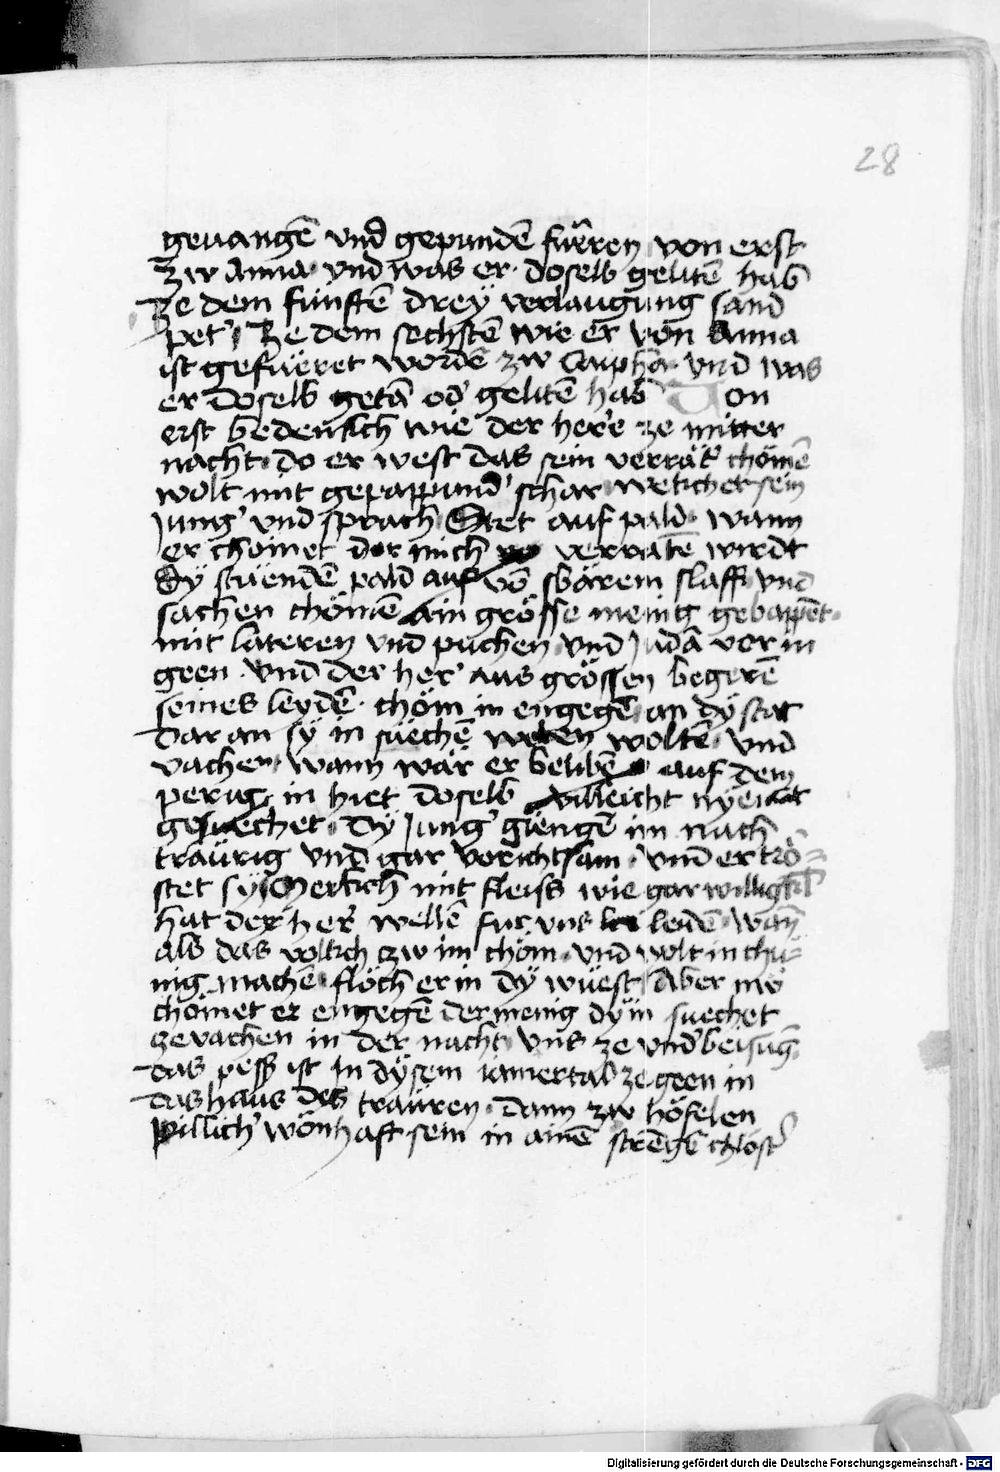 28
geuangē vnd gepundē füeren von erst
zw Anna · vnd was er · doselb gelitē hab
ze dem fünftē drey verlaugung sand
pet' · Ze dem sechstē wie er von Anna
ist gefüeret wordē zw Caipha · vnd was
er doselb getā od' gelitē hab Von
erst bedenkch wie der her'e ze mitter
nacht · do er west das sein verrät' chömē
wolt mit gepappund' schar sein
Jung' vnd sprach Stet auf pald · wann
er chömet der mich verratē wirdt
Dy stüendē pald auf vō swärem slaff vnd
sachen chömē ain grösse menig gebappēt ·
mit lateren vnd puchen · vnd Judā vor in
geen · vnd der her' aus grössen begerē
seines leydē · chöm in engegē an dy stat
dar an sy in süechē woltē · vnd
vachen · wann wär er belibē auf dem
perig · in hiet doselb villeicht nyemat
gesuechet · Dy Jung' giengē im nach
träurig vnd gar vorichtsam · vnd er trö=
stet sy Merkch mit fleiss wie gar willigkl'
hat der her' wellē fur vns leidē · wan̄
als das volkch zw im chöm · vnd wolt in chü=
nig machē · flöch er in dy wüest Aber
chömet er engegē der menig dy in suechet
ze vachen in der nacht · vns ze
das pess ist In dysem iamertal ze geen in
das haus des trauren · dann zw höfelen
pillich' wonhaft sein in ainē strēgē chlost'
Digitalisierung gefördert durch die Deutsche Forschungsgemeinschaft - DFG